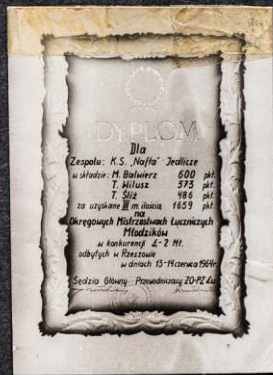 DYPLOM
Dla
Zespołu: K.S. „Nafta" Jedlicze
w składzie: M. Balwierz 600 pkt.
T. Wilusz 573 pkt.
T. Śliż 486 pkt.
za uzyskane III m. ilością 1659 pkt.
na
Okręgowych Mistrzostwach Łuczniczych
Młodzików
w konkurencji Ł-2 Mt.
odbytych w Rzeszowie
w dniach 13-14 czerwca 1964r.
Sędzia Główny Przewodniczący ZO-PZŁu